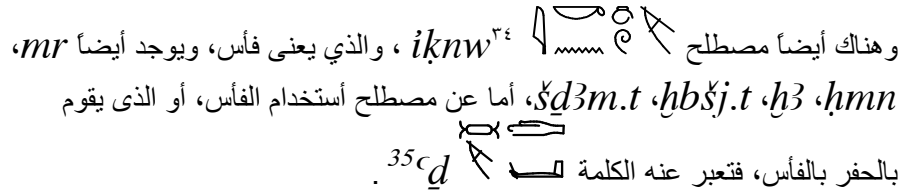 وهناك أيضاً مصطلح ỉḳnw³⁴ ، والذي يعنى فأس، ويوجد أيضاً mr،
ḥmn، ḫ3، ḫbšj.t، šḏ3m.t، أما عن مصطلح أستخدام الفأس، أو الذى يقوم
بالحفر بالفأس، فتعبر عنه الكلمة ʿḏ³⁵ .